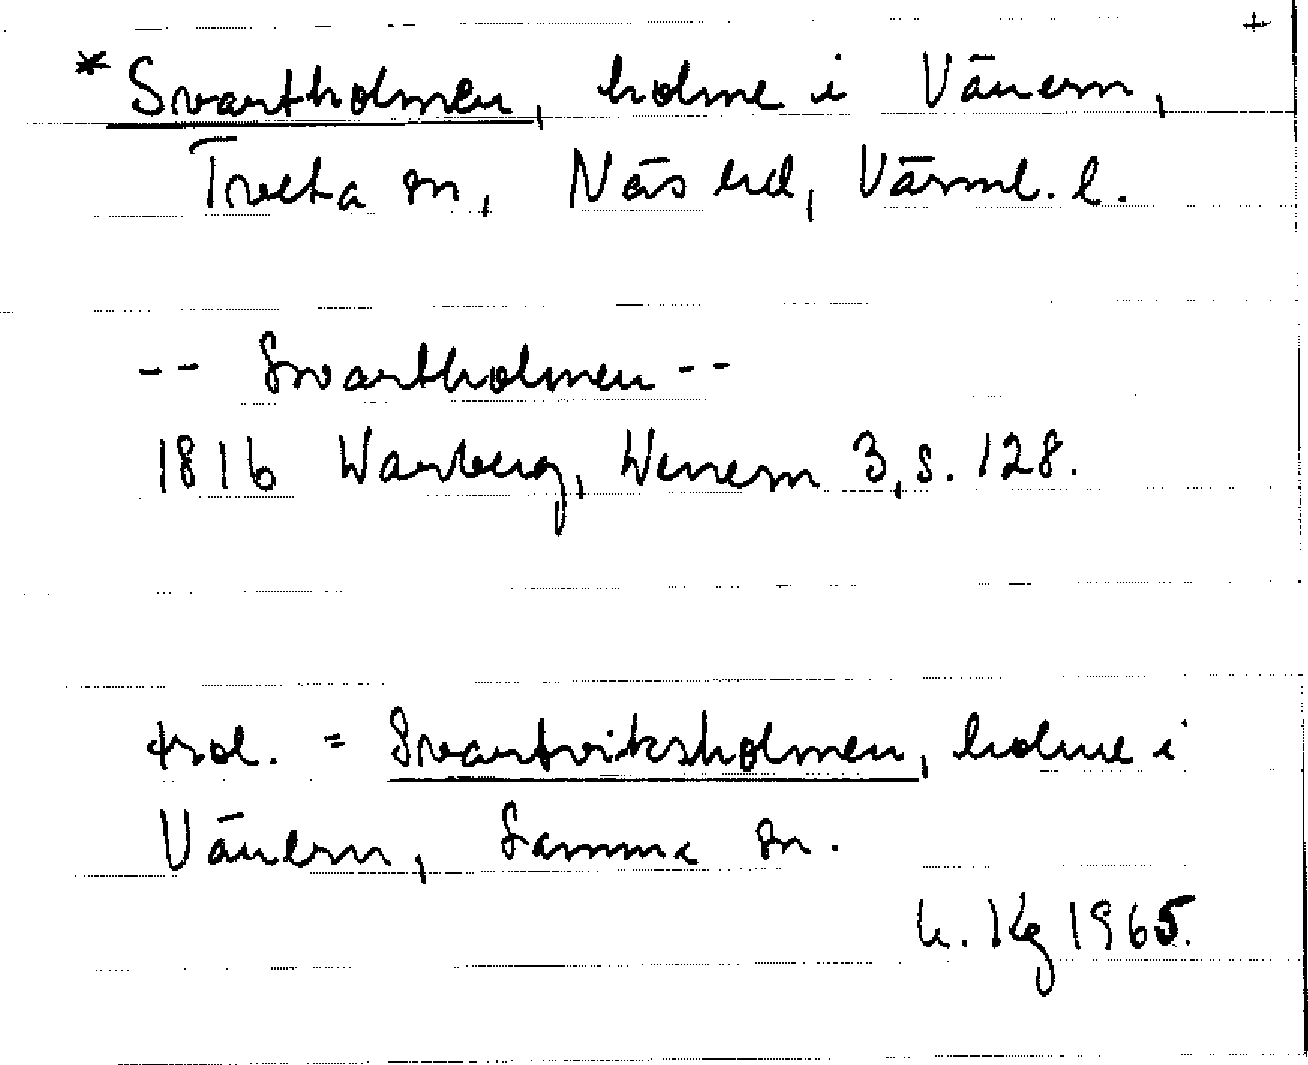 +
*Svartholmen, holme i Vänern,
Tveta sn, Näs hd, Värml. l.
-- Svartholmen --
1816 Warberg, Wenern 3, s. 128.
trol. = Svartviksholmen, holme i
Vänern, samma sn.
Kg 1965.